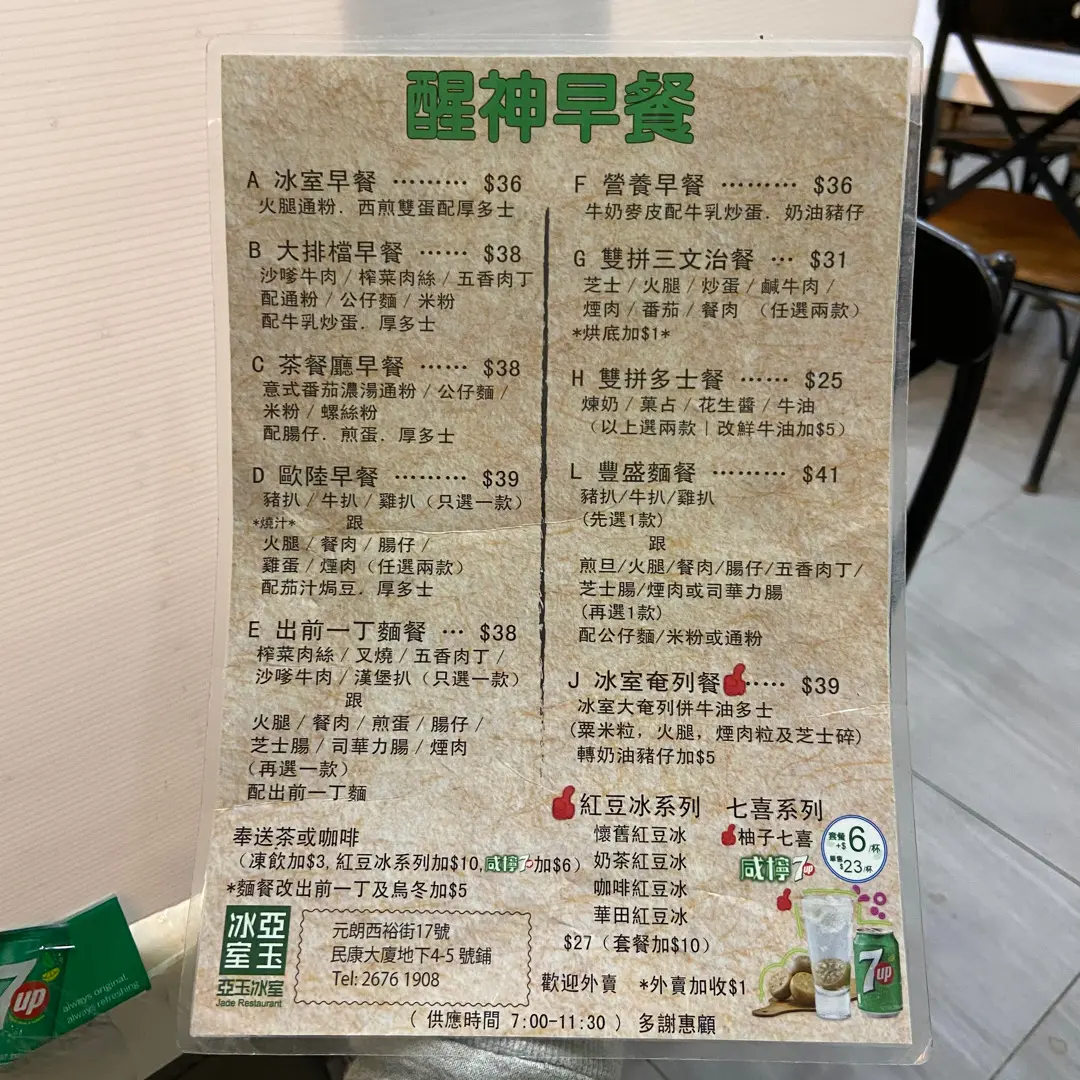 醒神早餐
A 冰室早餐 ……… $36
火腿通粉．西煎雙蛋配厚多士
B 大排檔早餐 …… $38
沙嗲牛肉/榨菜肉絲/五香肉丁
配通粉/公仔麵/米粉
配牛乳炒蛋．厚多士
C 茶餐廳早餐 …… $38
意式番茄濃湯通粉/公仔麵/
米粉/螺絲粉
配腸仔．煎蛋．厚多士
D 歐陸早餐 ……… $39
豬扒/牛扒/雞扒(只選一款)
*燒汁* 跟
火腿/餐肉/腸仔/
雞蛋/煙肉(任選兩款)
配茄汁焗豆．厚多士
E 出前一丁麵餐 … $38
榨菜肉絲/叉燒/五香肉丁/
沙嗲牛肉/漢堡扒(只選一款)
跟
火腿/餐肉/煎蛋/腸仔/
芝士腸/司華力腸/煙肉
(再選一款)
配出前一丁麵
F 營養早餐 ……… $36
牛奶麥皮配牛乳炒蛋．奶油豬仔
G 雙拼三文治餐 … $31
芝士/火腿/炒蛋/鹹牛肉/
煙肉/番茄/餐肉 (任選兩款)
*烘底加$1*
H 雙拼多士餐 …… $25
煉奶/菓占/花生醬/牛油
(以上選兩款|改鮮牛油加$5)
L 豐盛麵餐 ……… $41
豬扒/牛扒/雞扒
(先選1款)
跟
煎旦/火腿/餐肉/腸仔/五香肉丁/
芝士腸/煙肉或司華力腸
(再選1款)
配公仔麵/米粉或通粉
J 冰室奄列餐 …… $39
冰室大奄列併牛油多士
(粟米粒，火腿，煙肉粒及芝士碎)
轉奶油豬仔加$5
奉送茶或咖啡
(凍飲加$3,紅豆冰系列加$10,咸檸7加$6)
*麵餐改出前一丁及烏冬加$5
紅豆冰系列
懷舊紅豆冰
奶茶紅豆冰
咖啡紅豆冰
華田紅豆冰
$27(套餐加$10)
七喜系列
柚子七喜
咸檸7up
套餐+$6/杯
單售$23/杯
7up
冰室亞玉
亞玉冰室
Jade Restaurant
元朗西裕街17號
民康大廈地下4-5 號鋪
Tel: 2676 1908
歡迎外賣 *外賣加收$1
(供應時間 7:00-11:30) 多謝惠顧
7up
always original,
always refreshing